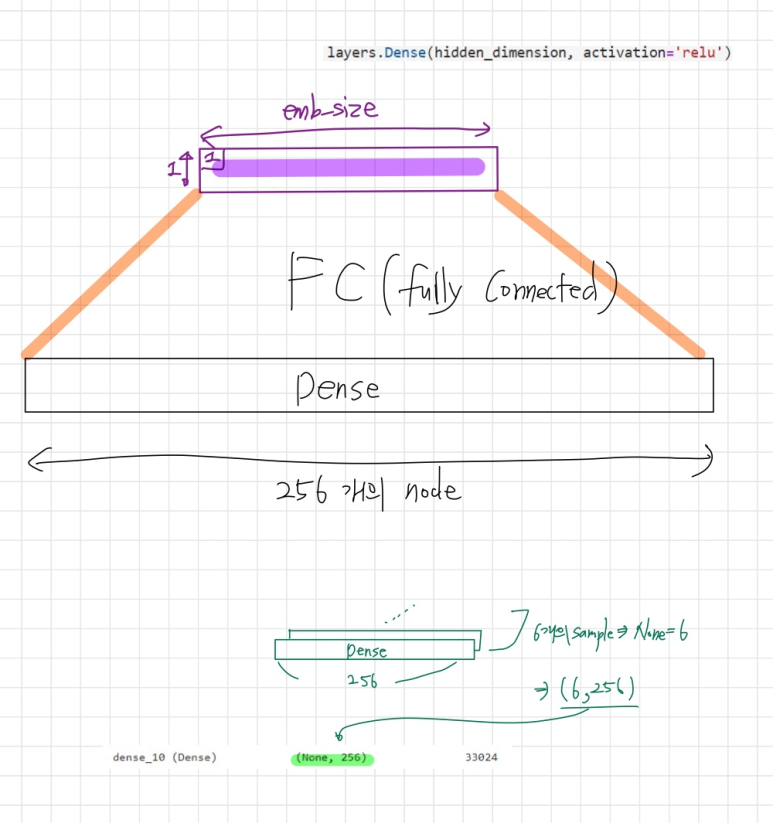 layers.Dense(hidden_dimension, activation='relu')
emb_size
1
1
FC (fully connected)
Dense
256 개의 node
Dense
256
6개의 sample ⇒ None=6
⇒ (6,256)
dense_10 (Dense) (None, 256) 33024